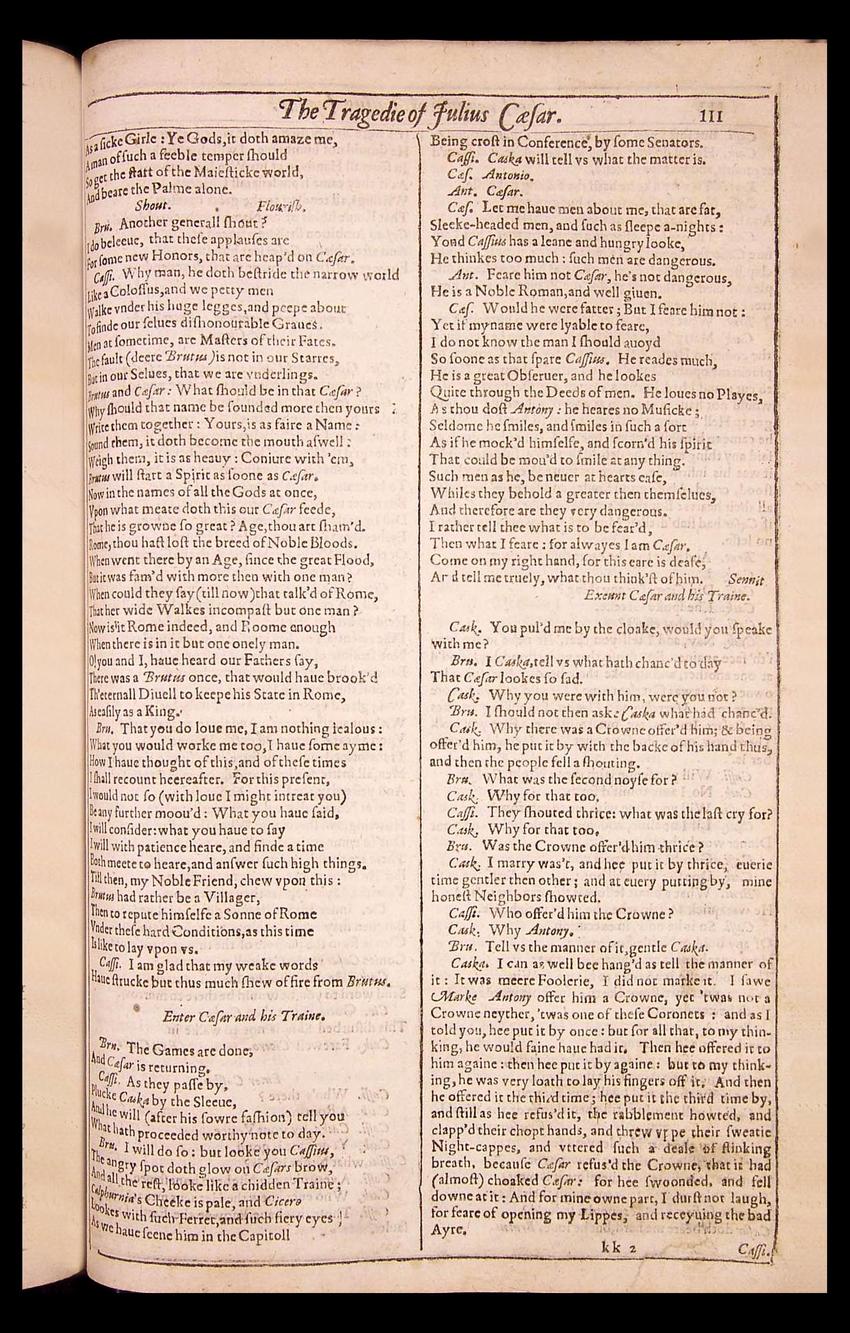 The Tragedie of Julius Cæſar. 111
As a ſicke Girle : Ye Gods, it doth amaze me,
A man of ſuch a feeble temper ſhould
So get the ſtart of the Maieſticke world,
And beare the Palme alone.
Shout. Flouriſh.
Bru. Another generall ſhout ?
I do beleeue, that theſe applauſes are
For ſome new Honors, that are heap'd on Cæſar.
Caſſi. Why man, he doth beſtride the narrow world
Like a Coloſſus, and we petty men
Walke vnder his huge legges, and peepe about
To finde our ſelues diſhonourable Graues.
Men at ſometime, are Maſters of their Fates.
The fault (deere Brutus) is not in our Starres,
But in our Selues, that we are vnderlings.
Brutus and Cæſar : What ſhould be in that Cæſar ?
Why ſhould that name be ſounded more then yours :
Write them together : Yours, is as faire a Name :
Sound them, it doth become the mouth aſwell :
Weigh them, it is as heauy : Coniure with 'em,
Brutus will ſtart a Spirit as ſoone as Cæſar.
Now in the names of all the Gods at once,
Vpon what meate doth this our Cæſar feede,
That he is growne ſo great ? Age, thou art ſham'd.
Rome, thou haſt loſt the breed of Noble Bloods.
When went there by an Age, ſince the great Flood,
But it was fam'd with more then with one man ?
When could they ſay (till now) that talk'd of Rome,
That her wide Walkes incompaſt but one man ?
Now is it Rome indeed, and Roome enough
When there is in it but one onely man.
O! you and I, haue heard our Fathers ſay,
There was a Brutus once, that would haue brook'd
Th'eternall Diuell to keepe his State in Rome,
As eaſily as a King.
Bru. That you do loue me, I am nothing iealous :
What you would worke me too, I haue ſome ayme :
How I haue thought of this, and of theſe times
I ſhall recount heereafter. For this preſent,
I would not ſo (with loue I might intreat you)
Be any further moou'd : What you haue ſaid,
I will conſider : what you haue to ſay
I will with patience heare, and finde a time
Both meete to heare, and anſwer ſuch high things.
Till then, my Noble Friend, chew vpon this :
Brutus had rather be a Villager,
Then to repute himſelfe a Sonne of Rome
Vnder theſe hard Conditions, as this time
Is like to lay vpon vs.
Caſſi. I am glad that my weake words
Haue ſtrucke but thus much ſhew of fire from Brutus.
Enter Cæſar and his Traine.
Bru. The Games are done,
And Cæſar is returning.
Caſſi. As they paſſe by,
Plucke Caska by the Sleeue,
And he will (after his ſowre faſhion) tell you
What hath proceeded worthy note to day.
Bru. I will do ſo : but looke you Caſſius,
The angry ſpot doth glow on Cæſars brow,
And all the reſt, looke like a chidden Traine ;
Calphurnia's Cheeke is pale, and Cicero
Lookes with ſuch Ferret, and ſuch fiery eyes
As we haue ſeene him in the Capitoll
Being croſt in Conference, by ſome Senators.
Caſſi. Caska will tell vs what the matter is.
Cæſ. Antonio.
Ant. Cæſar.
Cæſ. Let me haue men about me, that are fat,
Sleeke-headed men, and ſuch as ſleepe a-nights :
Yond Caſſius has a leane and hungry looke,
He thinkes too much : ſuch men are dangerous.
Ant. Feare him not Cæſar, he's not dangerous,
He is a Noble Roman, and well giuen.
Cæſ. Would he were fatter ; But I feare him not :
Yet if my name were lyable to feare,
I do not know the man I ſhould auoyd
So ſoone as that ſpare Caſſius. He reades much,
He is a great Obſeruer, and he lookes
Quite through the Deeds of men. He loues no Playes,
As thou doſt Antony : he heares no Muſicke ;
Seldome he ſmiles, and ſmiles in ſuch a ſort
As if he mock'd himſelfe, and ſcorn'd his ſpirit
That could be mou'd to ſmile at any thing.
Such men as he, be neuer at hearts eaſe,
Whiles they behold a greater then themſelues,
And therefore are they very dangerous.
I rather tell thee what is to be fear'd,
Then what I feare : for alwayes I am Cæſar.
Come on my right hand, for this eare is deafe,
And tell me truely, what thou think'ſt of him. Sennit
Exeunt Cæſar and his Traine.
Cask. You pul'd me by the cloake, would you ſpeake
with me ?
Bru. I Caska, tell vs what hath chanc'd to day
That Cæſar lookes ſo ſad.
Cask. Why you were with him, were you not ?
Bru. I ſhould not then aske Caska what had chanc'd.
Cask. Why there was a Crowne offer'd him; & being
offer'd him, he put it by with the backe of his hand thus,
and then the people fell a ſhouting.
Bru. What was the ſecond noyſe for ?
Cask. Why for that too.
Caſſi. They ſhouted thrice: what was the laſt cry for?
Cask. Why for that too.
Bru. Was the Crowne offer'd him thrice ?
Cask. I marry was't, and hee put it by thrice, euerie
time gentler then other ; and at euery putting by, mine
honeſt Neighbors ſhowted.
Caſſi. Who offer'd him the Crowne ?
Cask. Why Antony.
Bru. Tell vs the manner of it, gentle Caska.
Caska. I can as well bee hang'd as tell the manner of
it : It was meere Foolerie, I did not marke it. I ſawe
Marke Antony offer him a Crowne, yet 'twas not a
Crowne neyther, 'twas one of theſe Coronets : and as I
told you, hee put it by once : but for all that, to my thin-
king, he would faine haue had it. Then hee offered it to
him againe : then hee put it by againe : but to my think-
ing, he was very loath to lay his fingers off it. And then
he offered it the third time ; hee put it the third time by,
and ſtill as hee refus'd it, the rabblement howted, and
clapp'd their chopt hands, and threw vppe their ſweatie
Night-cappes, and vttered ſuch a deale of ſtinking
breath, becauſe Cæſar refus'd the Crowne, that it had
(almoſt) choaked Cæſar : for hee ſwoonded, and fell
downe at it : And for mine owne part, I durſt not laugh,
for feare of opening my Lippes, and receyuing the bad
Ayre.
kk 2 Caſſi.